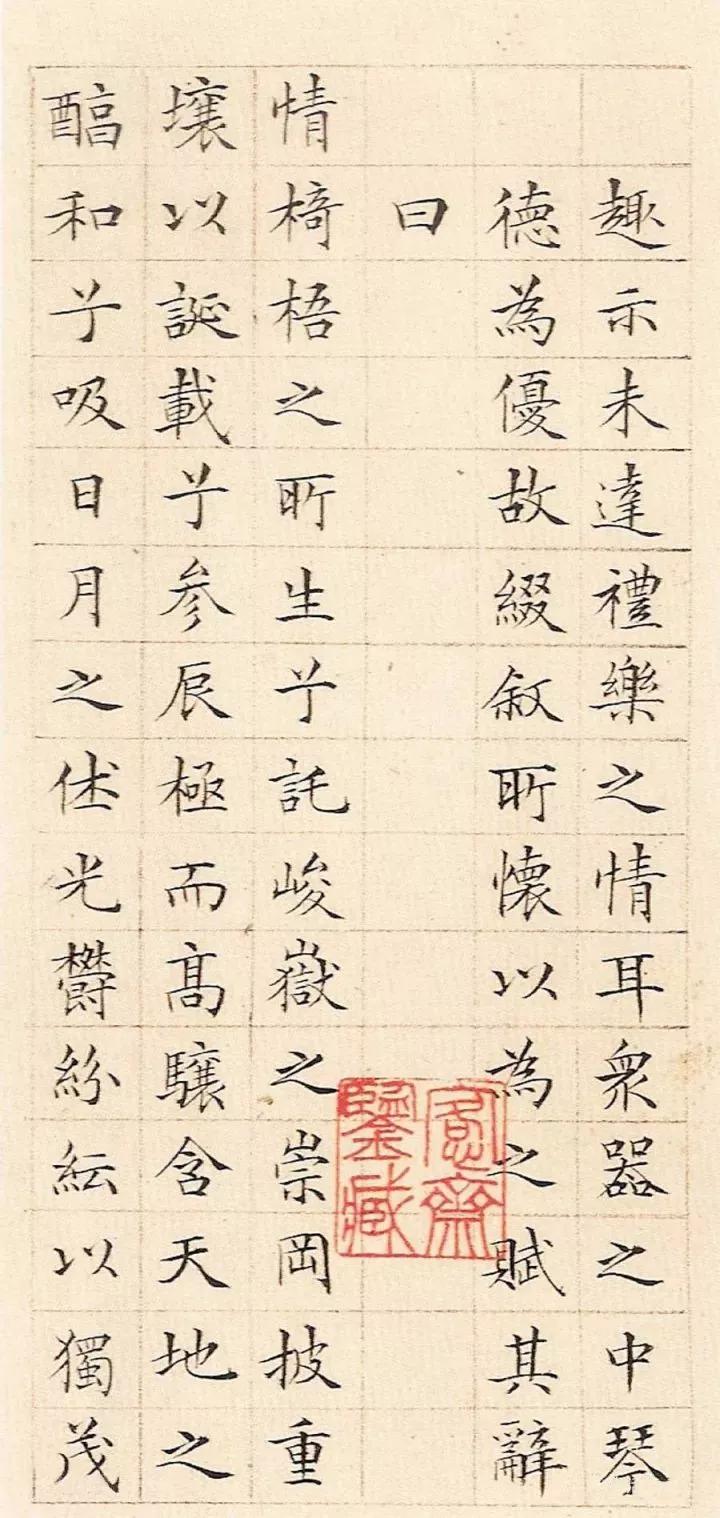 趣示未達禮樂之情耳衆器之中琴
德為優故綴敘所懷以為之賦其辭
曰
情椅梧之所生兮託峻嶽之崇岡披重
壤以誕載兮參辰極而高驤含天地之
醕和兮吸日月之休光鬱紛紜以獨茂
齋
鑒藏